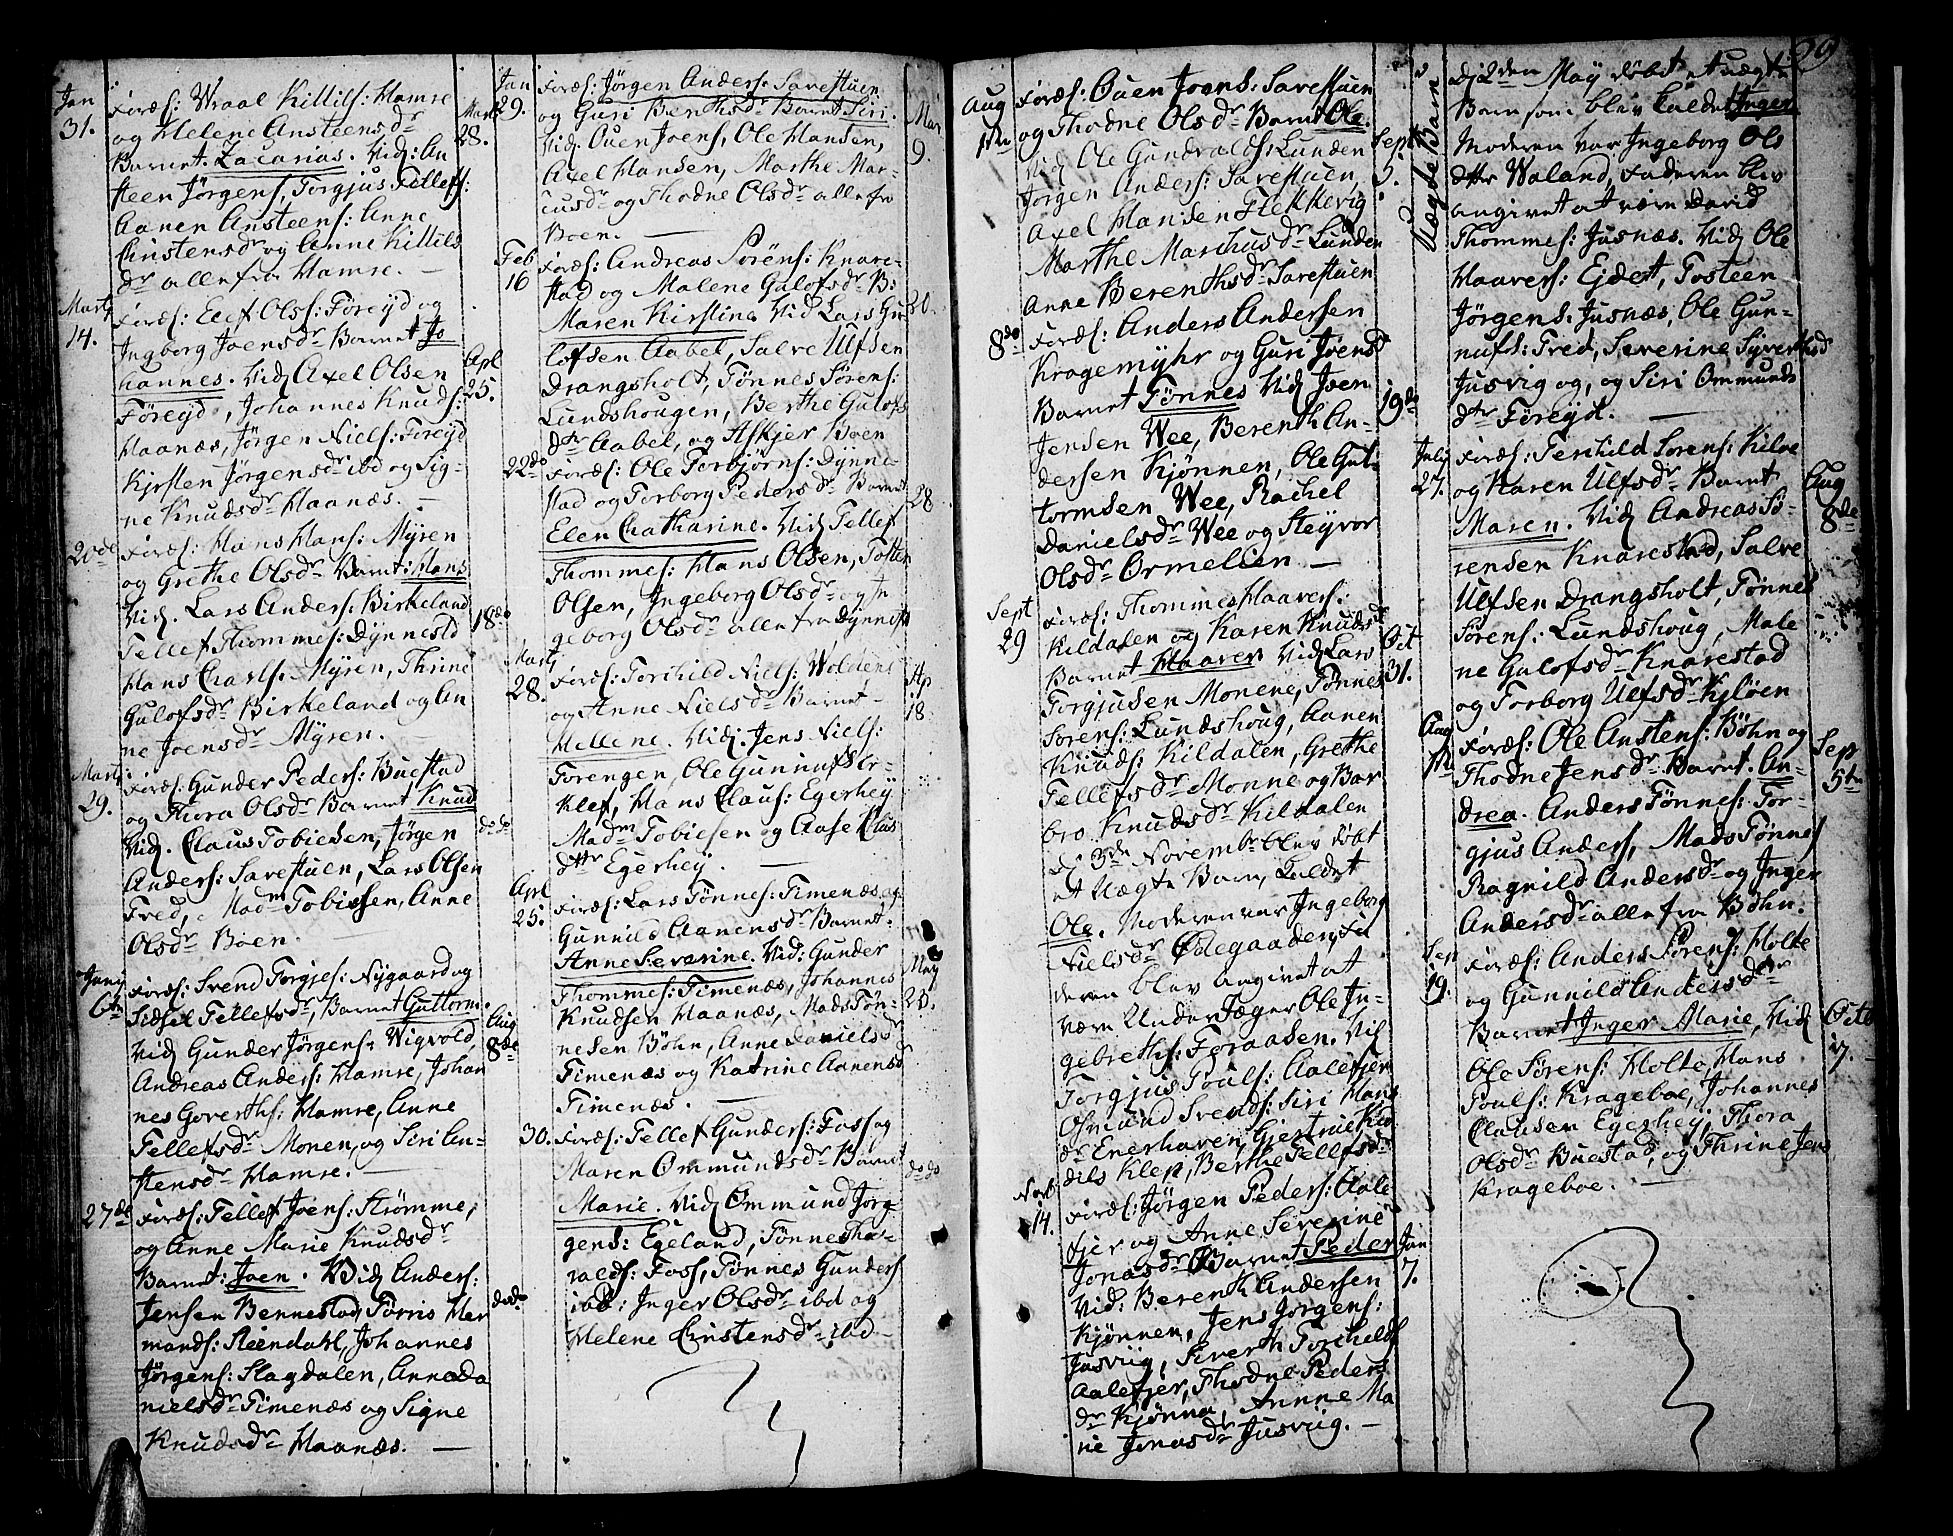 29
Jan
31.
Foræl: Wraal Killils: Hamre
og Helene Ansteensdr
Barnet Zacarias. Vid: An
steen Jörgens, Torgjus Tellefs:
Aanen Ansteens: Anne
Cristensdr og Anne Killils
dr alle fra Hamre. —
Mart
28.
Marty
14.
Foræl: Elef Ols: Föreyd og
Ingborg Joensdr Barnet Jo
hannes. Vid Axel Olsen
Föreyd, Johannes Knuds:
Haanæs, Jörgen Niels: Foreyd
Kjrsten Jörgensdr ibd og Sig-
ne Knudsdr Haanæs. —
Apl
25.
20de
Foræl: Hans Hans: Myren
og Grethe Olsdr Barnt: Hans
Vid. Lars Anders: Birkeland
Tellef Thommes: Dynnestd
Hans Charls. Myren, Thrine
Gulofsdr Birkeland og An
ne Joensdr Myren. —
18de
Marti
29.
Foræl: Gunder Peders: Buestad
og Thora Olsdr Barnet Knud
Vid. Claus Tobiesen, Jörgen
Anders: Savestuen, Lars Olsen
Fred, Madm Tobiesen, Anne
Olsdr Boen. —
do do
Juny
6te
Foræl: Svend Torgjes: Nygaard og
Sidsel Tellefsdr, Barnet Guttorm.
Vid Gunder Jörgens: Wigvold,
Andreas Anders: Hamre, Johan
nes Goverths: Hamre, Anne
Tellefsdr Monen, og Siri An-
stensdr Hamre. —
Aug
8de
27de
Foræl: Tellef Joens: Strömme,
og Anne Marie Knudsdr
Barnet: Joen. Vid Anders:
Jensen Bennestad, Torris Her
mands: Steendahl, Johannes
Jörgens: Slagdalen, Anne Da
nielsdr Timenæs og Signe
Knudsdr Haanæs. —
dodo
Jan
29.
Foræl: Jörgen Anders: Savestuen
og Guri Berethsdr Barnet Siri.
Vid. Ouen Joens, Ole Hansen,
Axel Hansen, Marthe Mar-
cusdr og Thodne Olsdr alle fra
Boen. —
Mar
9.
Feb
16
Foræl: Andreas Sörens: Knare-
stad og Malene Gulofsdr B:
Maren Kirstina Vid Lars Gu
lofsen Aabel, Salve Ulfsen
Drangsholt, Tönnes Sörens:
Lundshougen, Berthe Gulofs
dtr Aabel, og Askjer Boen
20.
22de
Foræl: Ole Torbjörns: Dynne-
stad og Torborg Pedersdr Barnet
Elen Chatharine. Vid Tellef
Thommes: Hans Olsen, Tosten
Olsen, Ingeborg Olsdr og In
geborg Olsdr alle fra Dynnest
28
Marty
28.
Foræl: Terchild Niels: Woldene
og Anne Nielsdr Barnet
Hellene. Vid. Jens Niels:
Torengen, Ole Gunnufs Er-
klef, Hans Claus: Egerhey
Madm Tobiesen og Aase Claus
dttr Egerhey. —
Ap
18.
Aprl
25.
Foræl: Lars Tönnes: Timenæs og
Gunnild Aanensdr Barnet.
Anne Severine. Vid: Gunder
Thommes: Timenæs, Johannes
Knudsen Haanæs, Mads Tön-
nesen Böhn, Anne Danielsd
Timenæs og Katrine Aanensd
Timenæs. —
May
20.
30.
Foræl: Tellef Gunders: Foss og
Maren Ommundsdr Barnet
Marie. Vid Ommund Jörg-
gens: Egeland, Tönnes Tho-
valds: Foss, Tönnes Gunders
ibd: Inger Olsdr ibd og
Helene Cristensdr ibd —
do do
Aug
1te
Foræl: Ouen Joens: Savestuen
og Thodne Olsdr Barnet Ole.
Vid Ole Gundvalds: Lunden
Jörgen Anders: Savestuen,
Axel Hansen Flekkevig
Marthe Marchusdr Lunden
Anne Berenthsdr Savestuen
Sept
5.
8de
Foræl: Anders Andersen
Kragemyhr og Guri Joensd
Barnet Tönnes Vid Joen
Jensen Wee, Berenth An-
dersen Kjönnen, Ole Gut-
tormsen Wee, Rachel
Danielsdr Wee og Steyvor
Olsdr Ormelien —
19de
Sept
29
Foræl: Thommes Haavers:
Kildalen og Karen Knudsd
Barnet Haaver Vid Lars
Torgjusen Monene, Tönnes
Sörens: Lundshoug, Aanen
Knuds: Kildalen, Grethe
Tellefsdr Monne og Bar
bro Knudsdr Kildalen
Oct
31.
d 3de Novembr blev döbt
et Uægte Barn, kaldet
Ole. Moderen var Ingeborg
Nielsdr Ødegaarden, Fa
deren blev angivet at
være Under Jæger Ole In-
gebreths: Foraasen. Vid
Torgjus Pouls: Aalefjer
Osmund Svends: Siri Hans
dr Enerhaven, Gjertrue Kid
dils Klep, Berthe Tellefsdr
Novb
14.
Foræl: Jörgen Peders: Aale
fjer og Anne Severine
Jonasdr Barnet Peder
Vid: Berenth Andersen
Kjönnen, Jens Jörgens:
Jusviig, Siverth Torchelds
Aalefjer, Thodne Peders
dr Kjönna, Annne Ma
rie Jonasdr Jusviig. —
Jan
7.
Uægte Barn
D 2den May döbt et uægte
Barn som blev kaldet Inger
Moderen var Ingeborg Ols
dttr Woland, Faderen blev
angivet at være David
Thommes: Jusnæs. Vid Ole
Haavers: Ejdet, Tosteen
Jörgens: Jusnæs, Ole Gun-
nufs: Fred, Severine Syverthsd
Jusvig og, og Siri Ommunds
dtr Föreyd. —
July
27.
Foræl: Terchild Sörens: Kilve
og Karen Ulfsdr Barnet
Maren. Vid Andreas Sö-
rensen Knarestad, Salve
Ulfsen Drangsholt, Tönnes
Sörens: Lundshoug, Male
ne Gulofsdr Knarestad
og Torborg Ulfsdr Kjlöen
Aug
8de
Aug
1te
Foræl: Ole Anstens: Böhn og
Thodne Jensdr Barnet. An-
drea. Anders Tönnes: Tor-
gjus Anders, Mads Tönnes
Ragnild Andersdr og Inger
Andersdr alle fra Böhn.
Sep
5te
Sep
19.
Foræl: Anders Sörens: Holte
og Gunnild Andersdr
Barnet Inger Marie, Vid
Ole Sörens: Holte, Hans
Pouls: Krageboe, Johannes
Clausen Egerhey, Thora
Olsdr Buestad, og Thrine Jens
Krageboe. —
Octb
17.